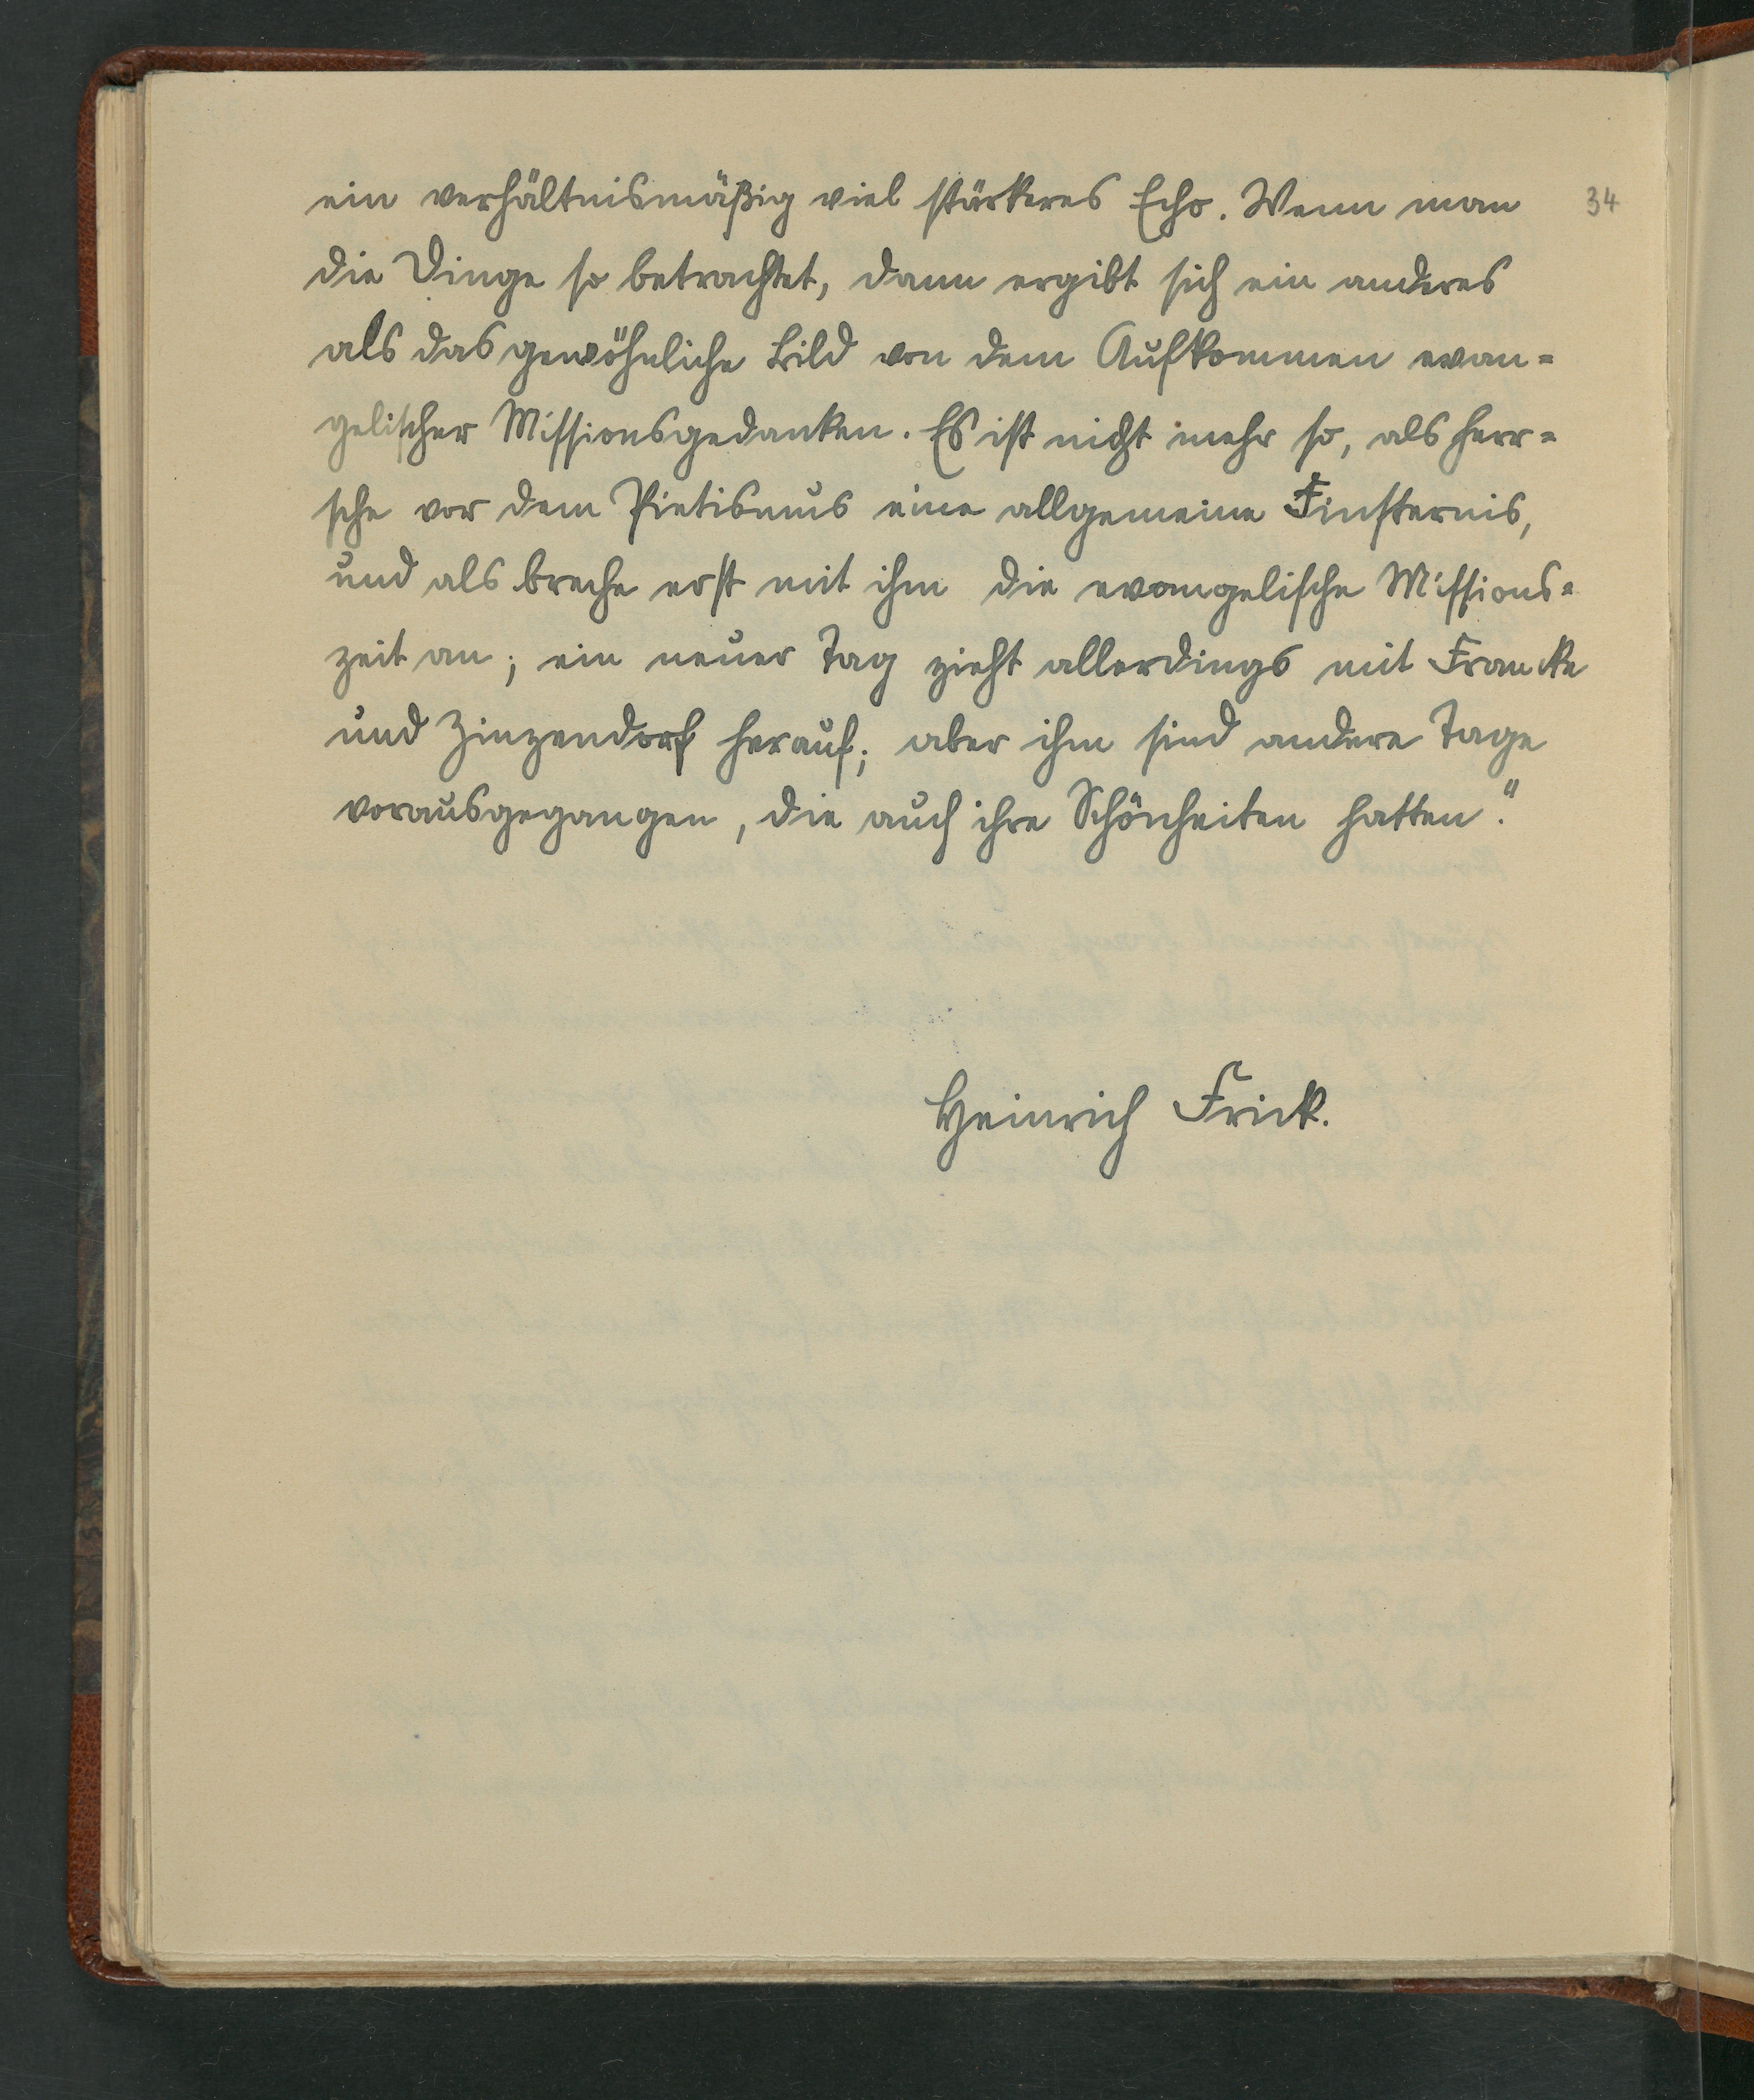 ein verhältnismäßig viel stärkeres Echo. Wenn man 34
die Dinge so betrachtet, dann ergibt sich ein anderes
als das gewöhnliche Bild von dem Aufkommen evan=
gelischer Missionsgedanken. Es ist nicht mehr so, als herr=
sche vor dem Pietismus eine allgemeine Finsternis,
und als breche erst mit ihm die evangelische Missions=
zeit an; ein neuer Tag zieht allerdings mit Francke
und Zinzendorf herauf; aber ihm sind andere Tage
vorausgegangen, die auch ihre Schönheiten hatten."
Heinrich Frick.